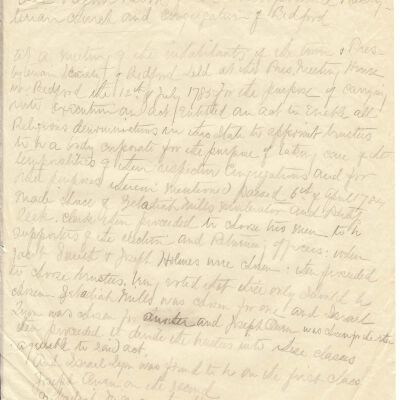 terian church and congregation of Bedford
at a meeting of the inhabitants of the town & Pres-
byterian Society of Bedford held at the Pres. Meeting House
in Bedford the 12th of July 1785 for the purpose of carying
into execution an act entitled an act to Enable all
Religious denominations in this State to appoint trustees
to be a body corporate for the purpose of taking care of the
temporalities of their respective Congregations and for
other purposes therein Mentioned passed 6th of April 1784
Made choice of Zebadiah Mills Moderator and
Clerk. then proceeded to choose two men to be
Supporters of the election and Returning officers: when
Jacob & Joseph Holmes were chosen: then proceeded
to choose trustees. Was voted that three only should be
chosen. Zebadiah Mills was chosen for one and Israel
Lyon was chosen for another and Joseph Owen was chosen for the other
then proceeded to divide the trustees into three classes
agreeable to said act.
and Israel Lyon was found to be on the first class
Joseph Owen on the second